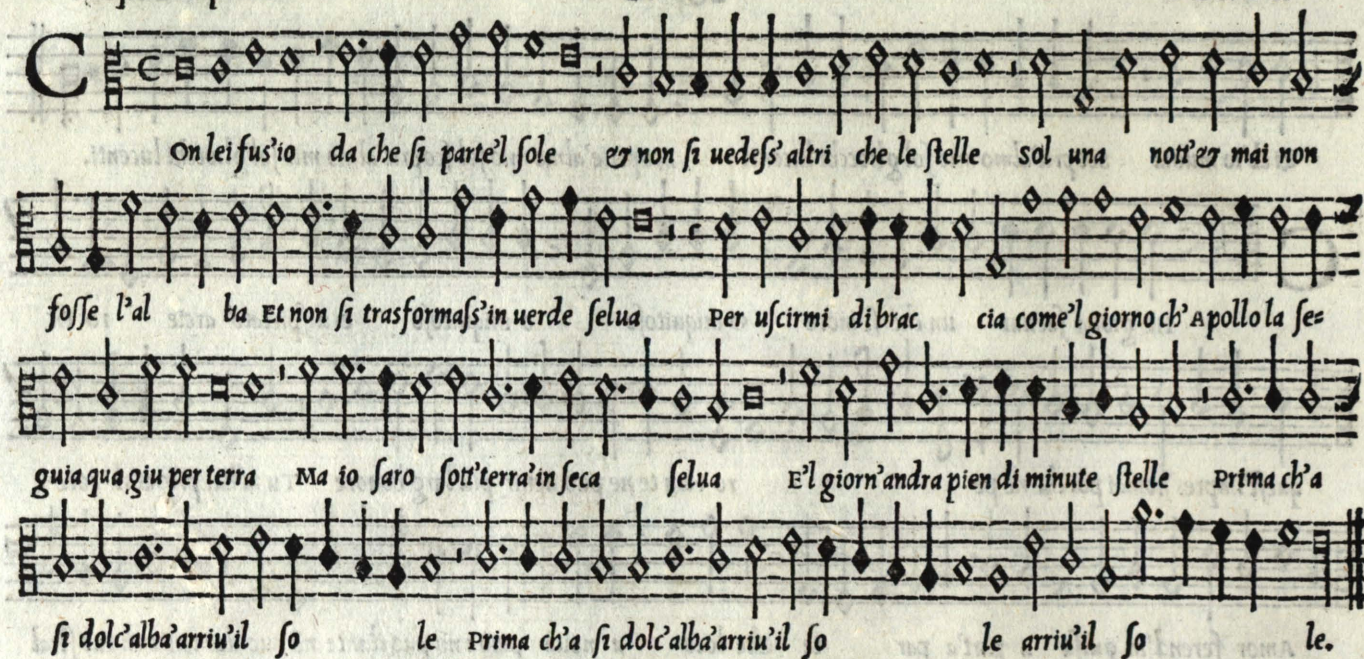 Con lei fus'io da che si parte'l sole & non si uedess' altri che le stelle Sol una nott' & mai non
fosse l'al ba Et non si trasformass' in uerde selua Per uscirmi di brac cia come'l giorno ch' Apollo la se=
guia qua giu per terra Ma io saro sott'terra' in seca selua E'l giorn' andra pien di minute stelle Prima ch'a
si dolc'alba'arriu'il so le Prima ch'a si dolc'alba'arriu'il so le arriu'il so le.